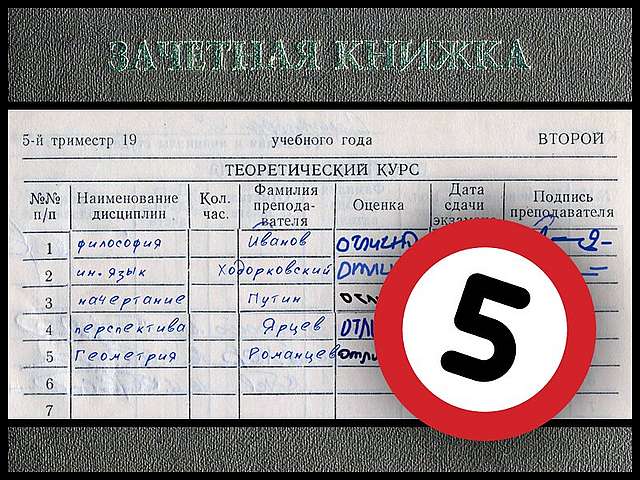 ЗАЧЕТНАЯ КНИЖКА
5-й триместр 19 учебного года ВТОРОЙ
ТЕОРЕТИЧЕСКИЙ КУРС
№№ п/п Наименование дисциплин Кол. час. Фамилия препода- вателя Оценка Дата сдачи экзамена Подпись преподавателя
1 философия Иванов отлично
2 ин. язык Ходорковский отли
3 начертание Путин отл
4 перспектива Ярцев отл
5 Геометрия Романцев отли
6
7
5